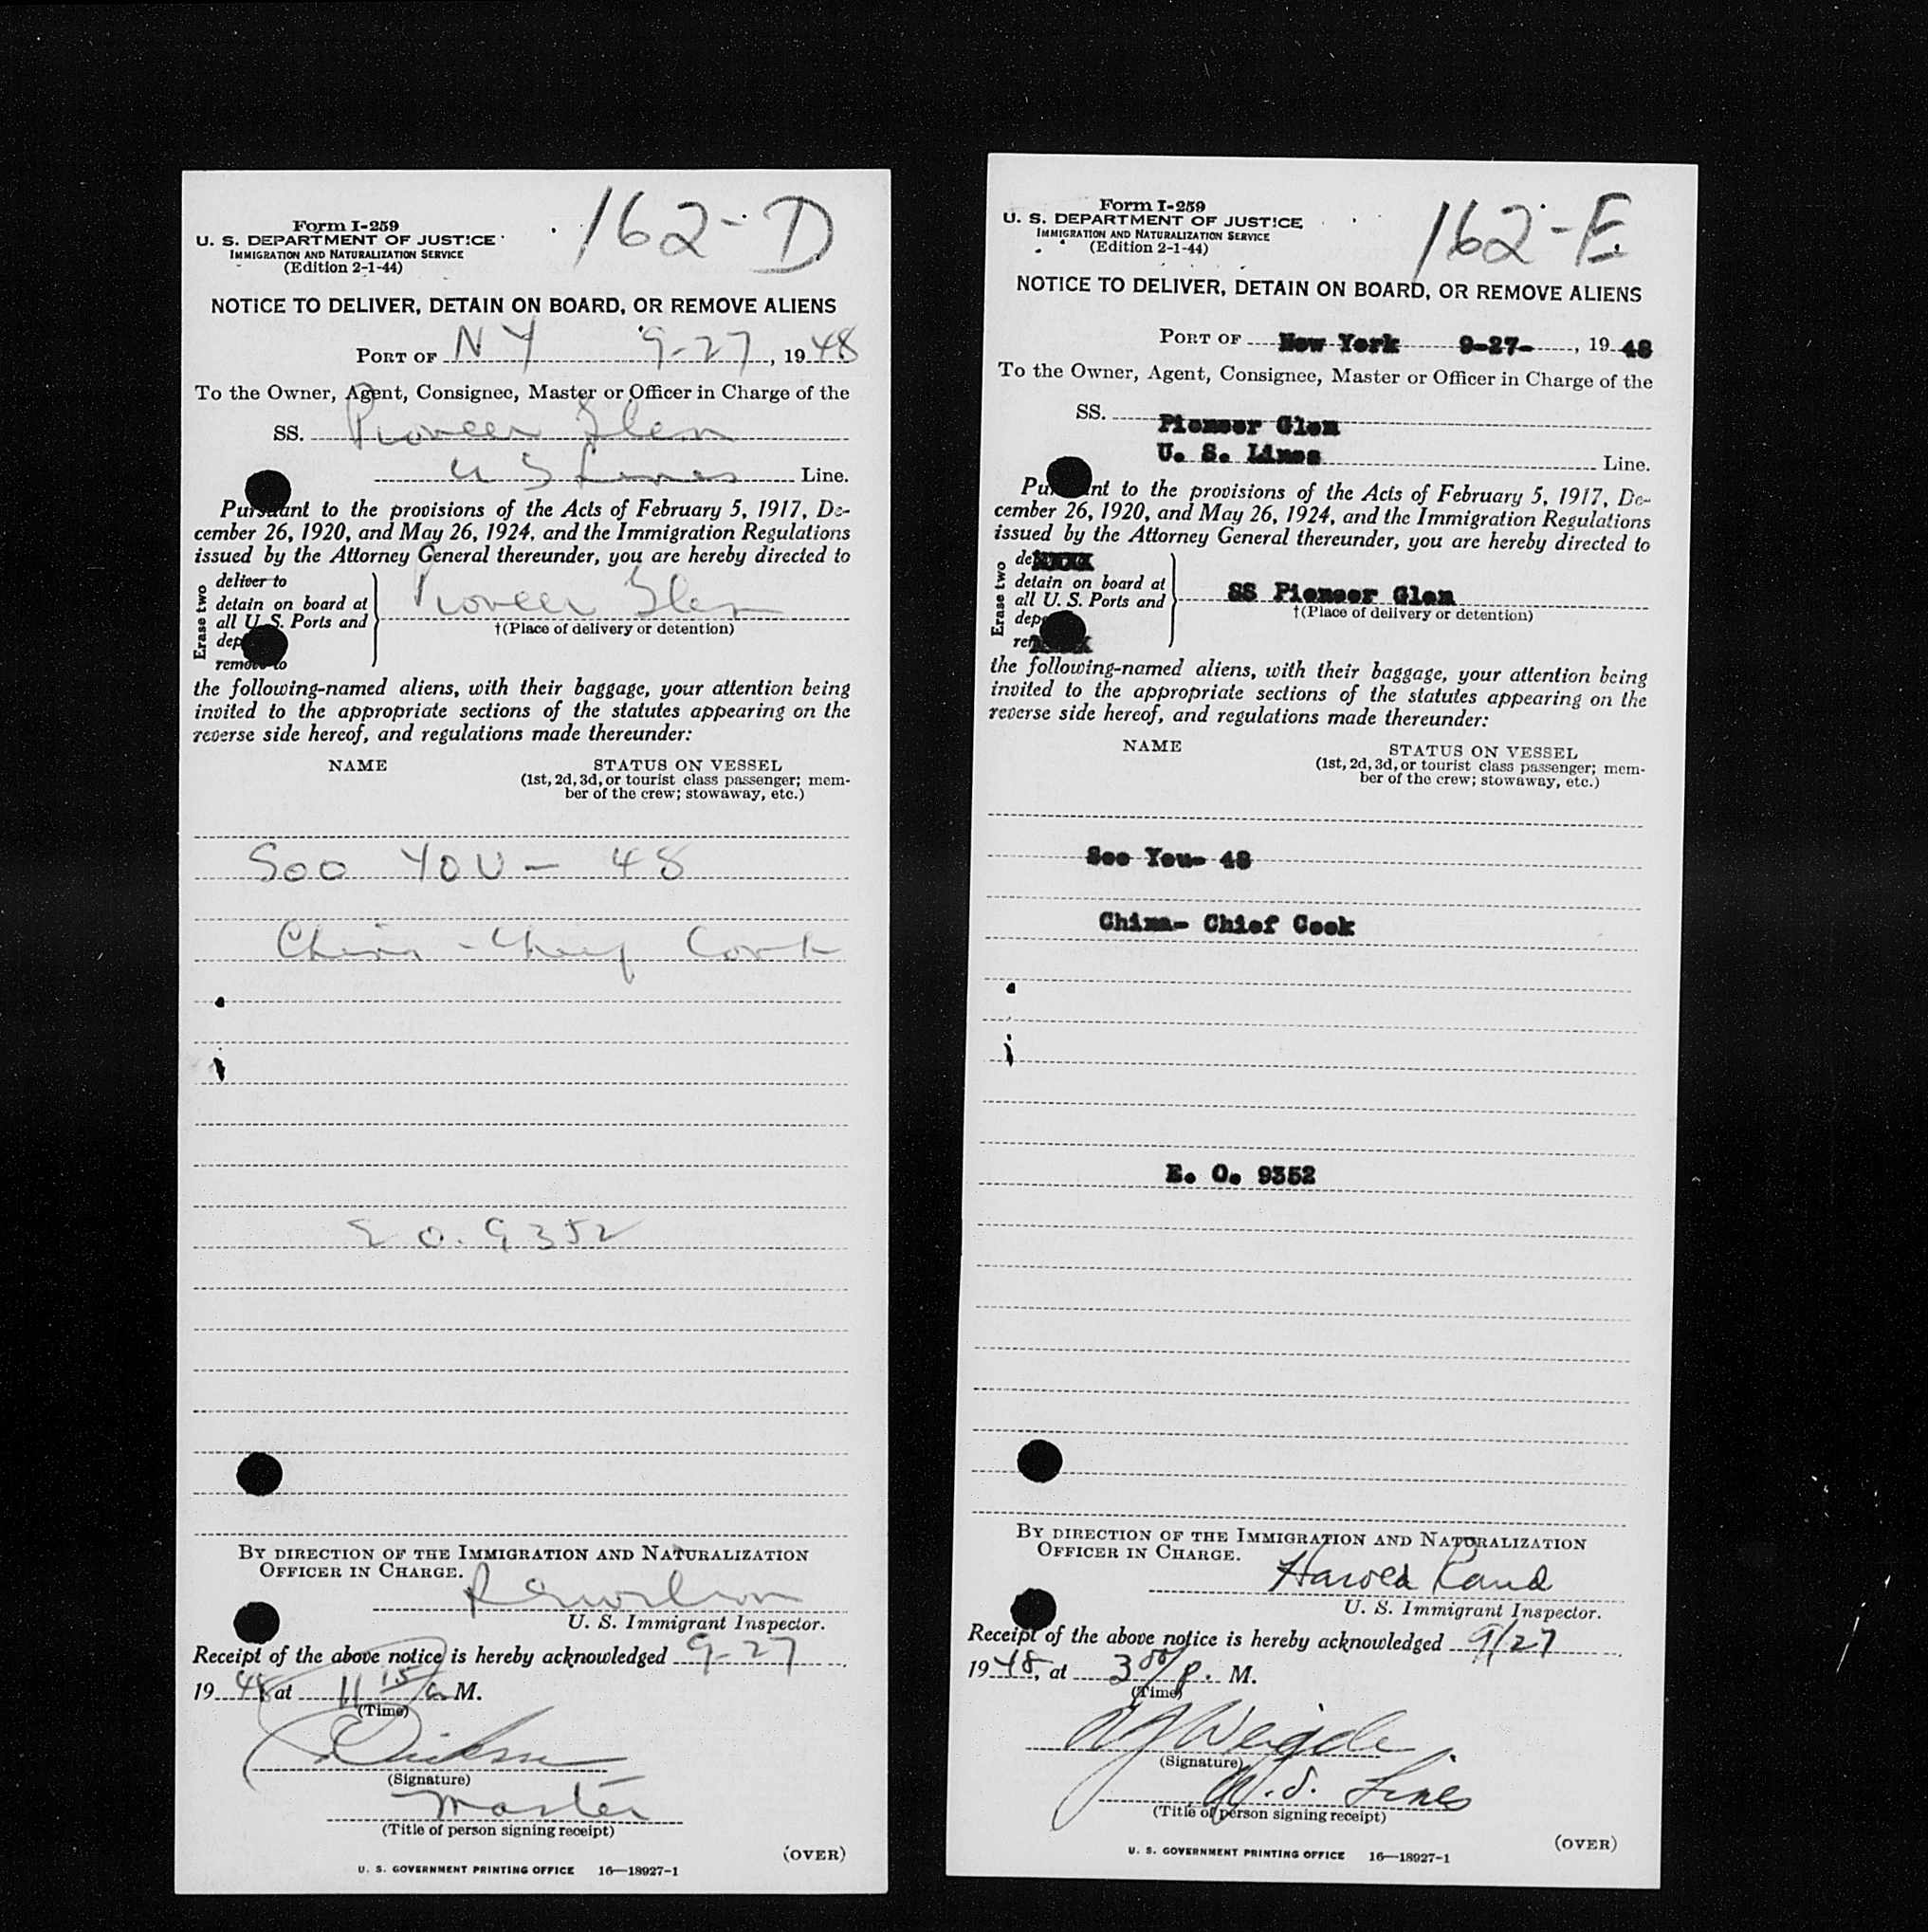 162-D
Form I-259
U. S. DEPARTMENT OF JUSTICE
IMMIGRATION AND NATURALIZATION SERVICE
(Edition 2-1-44)
NOTICE TO DELIVER, DETAIN ON BOARD, OR REMOVE ALIENS
PORT OF N Y 9-27, 1948
To the Owner, Agent, Consignee, Master or Officer in Charge of the
SS. Pioneer Glen
U S Lines Line.
Pursuant to the provisions of the Acts of February 5, 1917, De-
cember 26, 1920, and May 26, 1924, and the Immigration Regulations
issued by the Attorney General thereunder, you are hereby directed to
Erase two
deliver to
detain on board at
all U. S. Ports and
dep
remove to
Pioneer Glen
†(Place of delivery or detention)
the following-named aliens, with their baggage, your attention being
invited to the appropriate sections of the statutes appearing on the
reverse side hereof, and regulations made thereunder:
NAME STATUS ON VESSEL
(1st, 2d, 3d, or tourist class passenger; mem-
ber of the crew; stowaway, etc.)
Soo YOU - 48
China - Chief Cook
E O. 9352
BY DIRECTION OF THE IMMIGRATION AND NATURALIZATION
OFFICER IN CHARGE.
U. S. Immigrant Inspector.
Receipt of the above notice is hereby acknowledged 9-27
1948 at 11 15/a M.
(Time)
(Signature)
Master
(Title of person signing receipt)
(OVER)
U. S. GOVERNMENT PRINTING OFFICE 16—18927-1
162-E
Form I-259
U. S. DEPARTMENT OF JUSTICE
IMMIGRATION AND NATURALIZATION SERVICE
(Edition 2-1-44)
NOTICE TO DELIVER, DETAIN ON BOARD, OR REMOVE ALIENS
PORT OF New York 9-27-, 1948
To the Owner, Agent, Consignee, Master or Officer in Charge of the
SS. Pioneer Glen
U. S. Lines Line.
Pu nt to the provisions of the Acts of February 5, 1917, De-
cember 26, 1920, and May 26, 1924, and the Immigration Regulations
issued by the Attorney General thereunder, you are hereby directed to
Erase two
de
detain on board at
all U. S. Ports and
dep
re
SS Pioneer Glen
†(Place of delivery or detention)
the following-named aliens, with their baggage, your attention being
invited to the appropriate sections of the statutes appearing on the
reverse side hereof, and regulations made thereunder:
NAME STATUS ON VESSEL
(1st, 2d, 3d, or tourist class passenger; mem-
ber of the crew; stowaway, etc.)
Soo You- 48
China- Chief Cook
E. O. 9352
BY DIRECTION OF THE IMMIGRATION AND NATURALIZATION
OFFICER IN CHARGE.
Harold Rand
U. S. Immigrant Inspector.
Receipt of the above notice is hereby acknowledged 9/27
1948, at 3 00/p. M.
(Time)
(Signature)
U. S. Lines
(Title of person signing receipt)
(OVER)
U. S. GOVERNMENT PRINTING OFFICE 16—18927-1